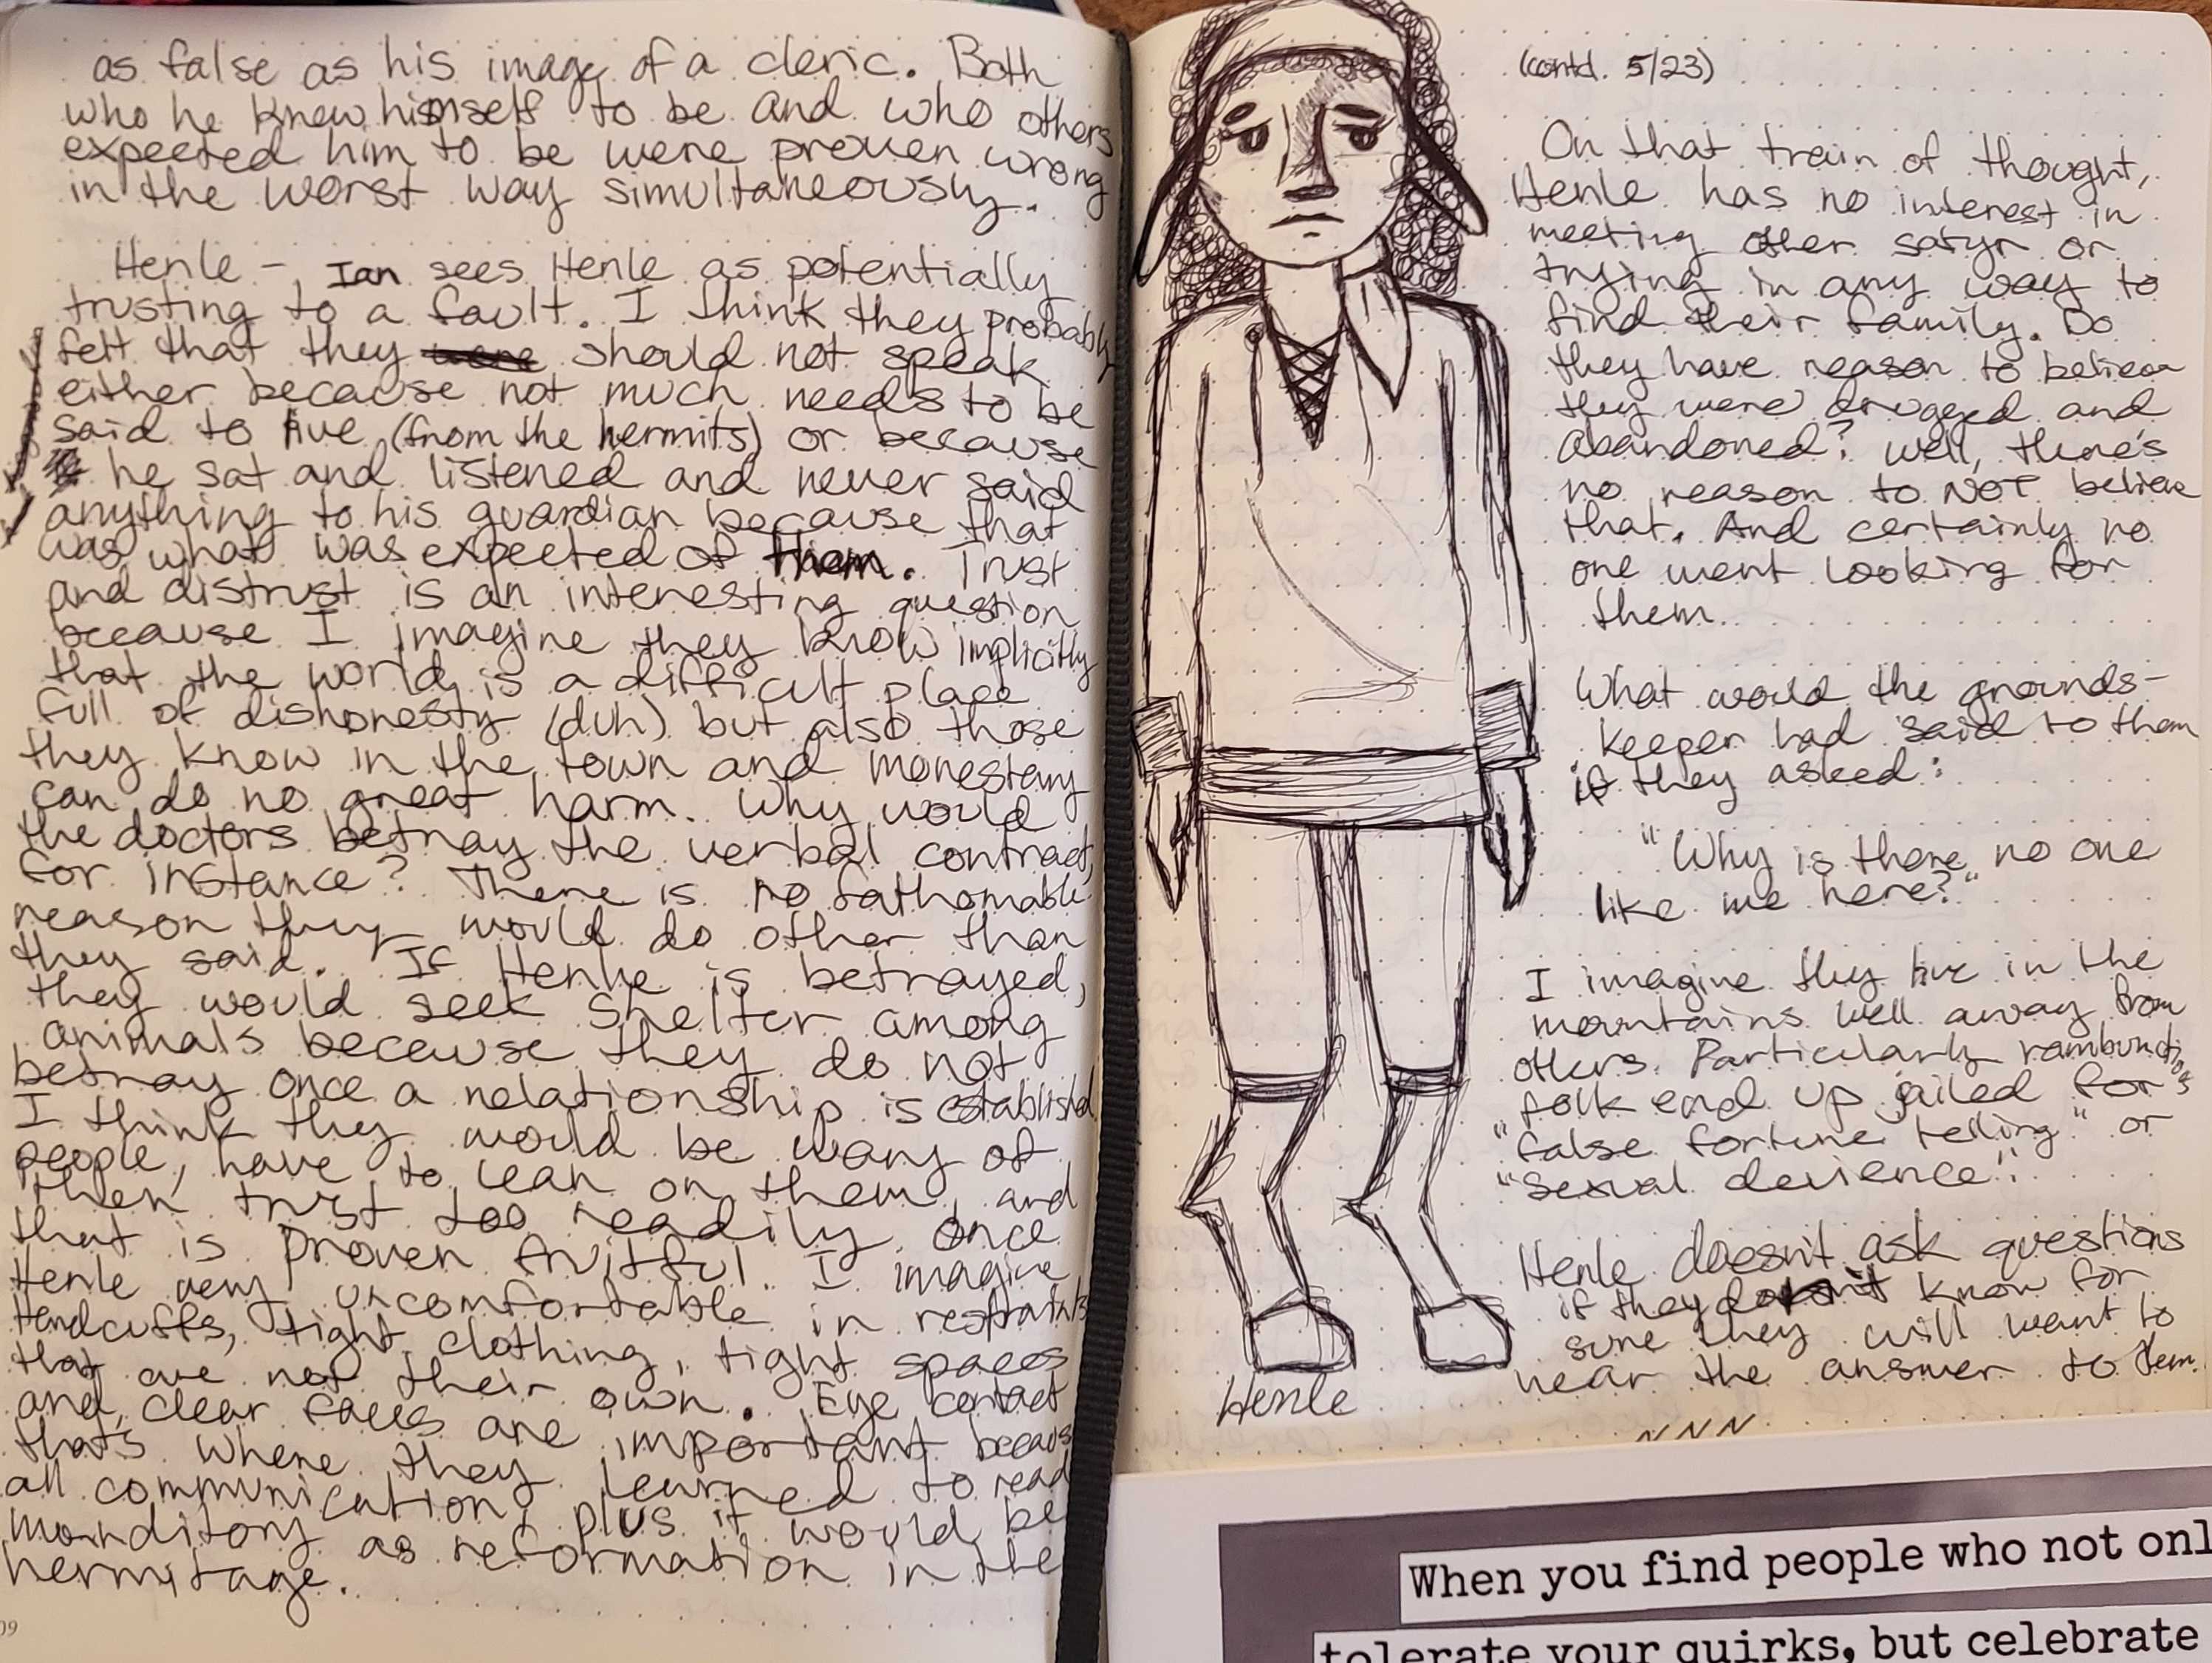 as false as his image of a cleric. Both
who he knew himself to be and who others
expected him to be were proven wrong
in the worst way simultaneously.
Henle - Ian sees Henle as potentially
trusting to a fault. I think they probably
felt that they were should not speak
either because not much needs to be
said to live (from the hermits) or because
he sat and listened and never said
anything to his guardian because that
was what was expected of them. Trust
and distrust is an interesting question
because I imagine they know implicitly
that the world is a difficult place
full of dishonesty (duh) but also those
they know in the town and monestary
can do no great harm. Why would
the doctors betray the verbal contract,
for instance? There is no fathomable
reason they would do other than
they said. If Henle is betrayed,
they would seek shelter among
animals because they do not
betray once a relationship is established
I think they would be wary of
people, have to lean on them, and
then trust too readily once
that is proven fruitful. I imagine
Henle very uncomfortable in restraints
Handcuffs, tight clothing, tight spaces
that are not their own. Eye contact
and clear faces are important because
that's where they learned to read
all communication, plus it would be
manditory as reformation in the
hermitage.
09
(contd. 5/23)
On that train of thought,
Henle has no interest in
meeting other satyr or
trying in any way to
find their family. Do
they have reason to believe
they were drugged and
abandoned? Well, there's
no reason to NOT believe
that. And certainly no
one went looking for
them.
What would the grounds-
keeper had said to them
if they asked:
"Why is there no one
like me here?"
I imagine they live in the
mountains well away from
others. Particularly rambunctious
folk end up jailed for
"false fortune telling" or
"sexual devience".
Henle doesn't ask questions
if they don't know for
sure they will want to
hear the answer to them.
NNN
Henle
When you find people who not onl
tolerate your quirks, but celebrate